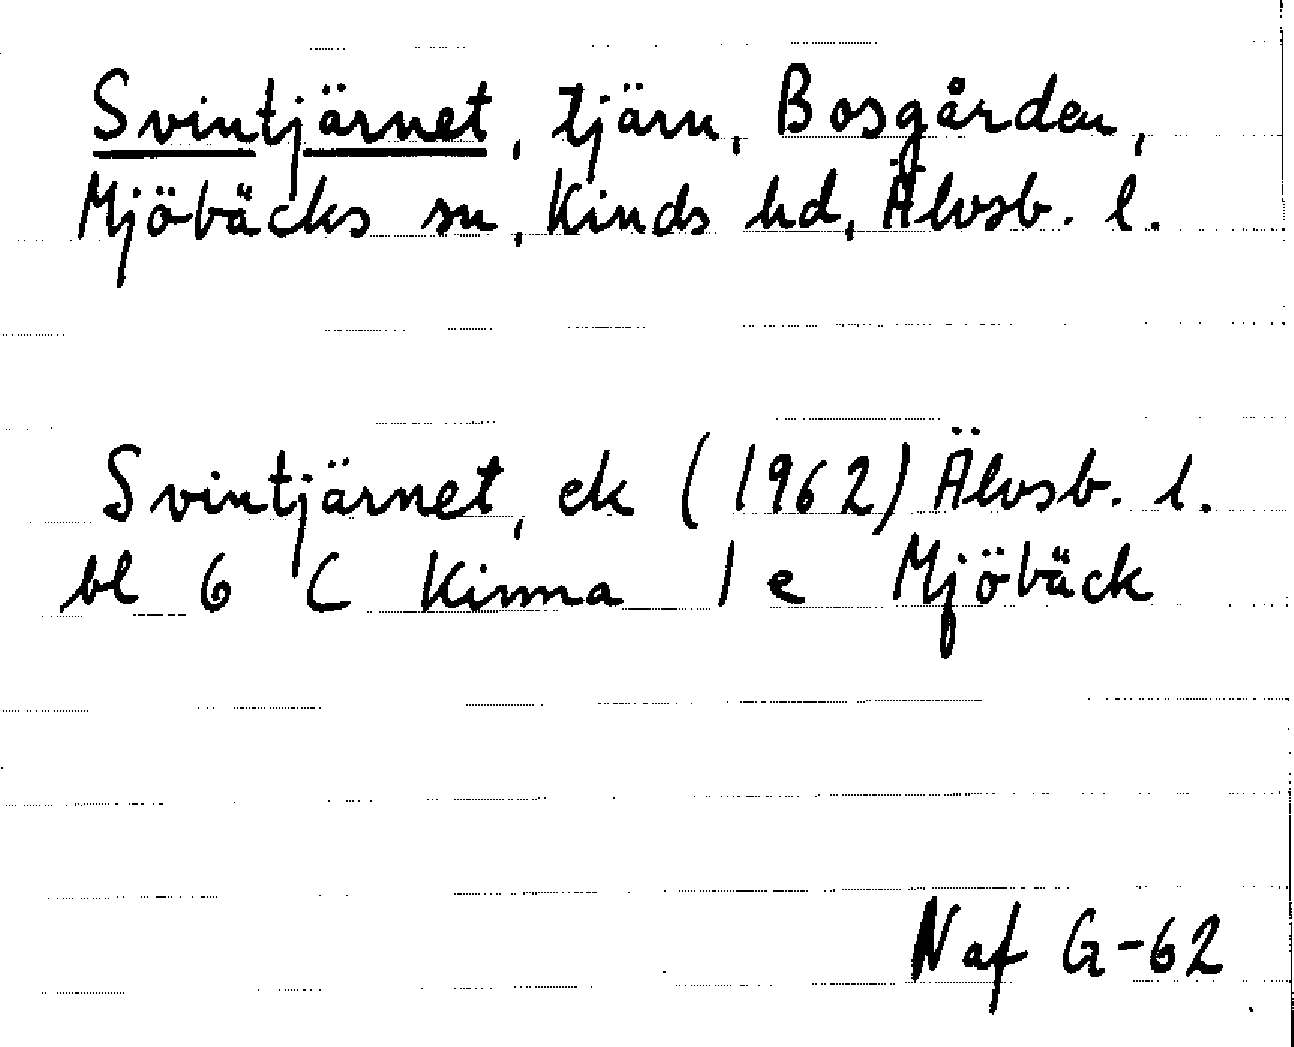 Svintjärnet, tjärn, Bosgården,
Mjöbäcks sn, Kinds hd, Älvsb. l.
Svintjärnet, ek (1962) Älvsb. l.
bl 6 C Kinna 1 e Mjöbäck
Naf G-62